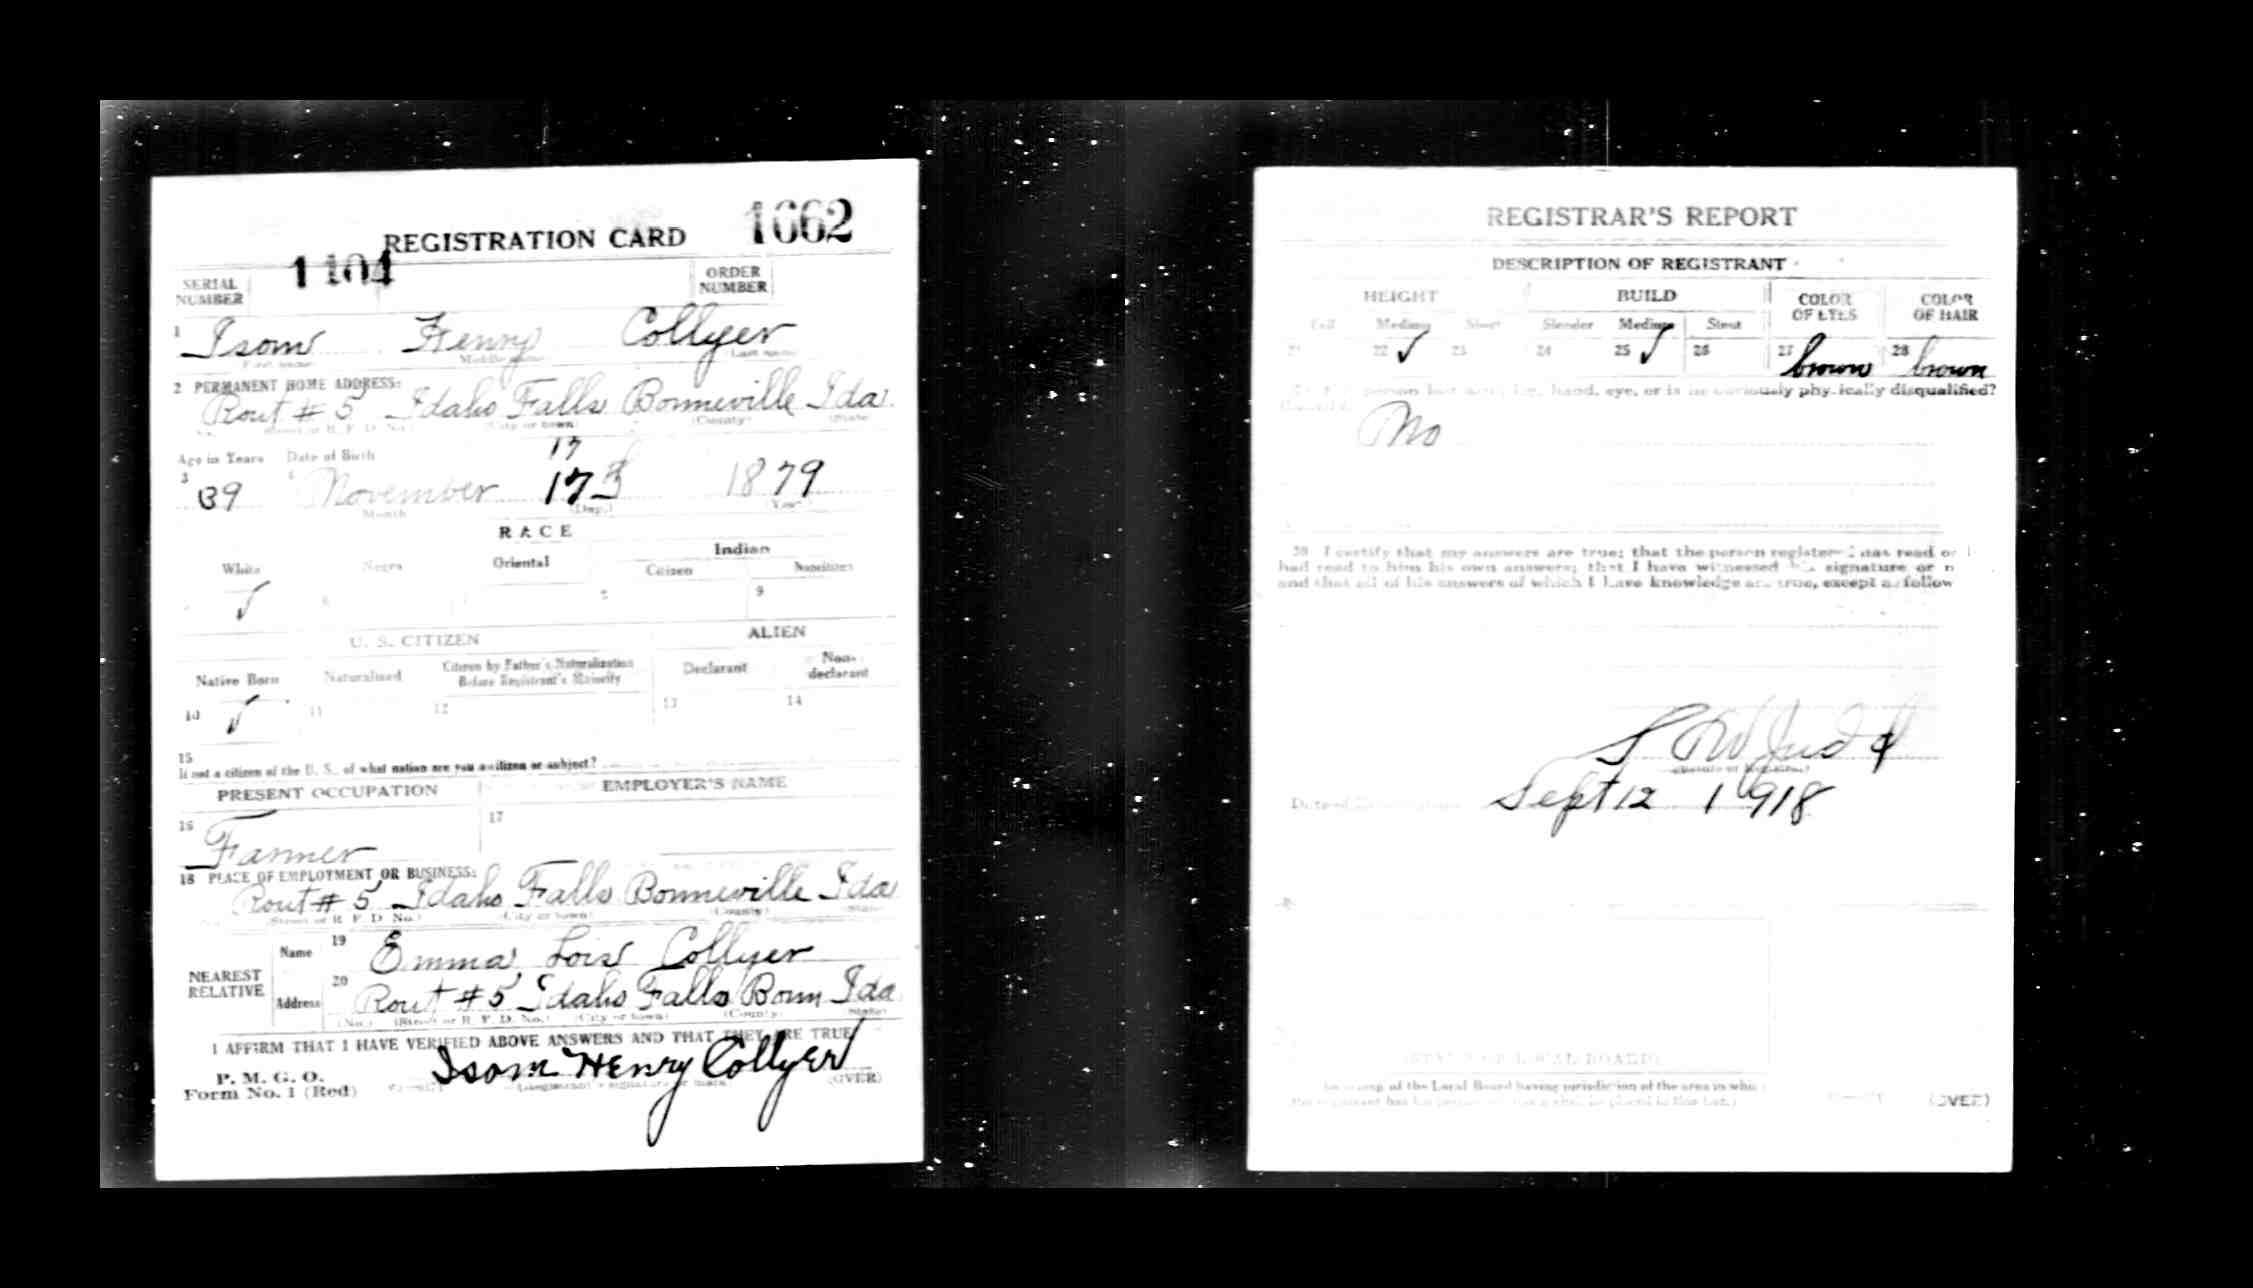 REGISTRATION CARD 1662
SERIAL NUMBER 1104 ORDER NUMBER
1 Isom Henry Collyer
2 PERMANENT HOME ADDRESS:
Rout # 5 Idaho Falls Bonneville Ida.
(City or town) (County) (State)
Age in Years Date of Birth 17
3 39 November 17 1879
Month (Day.) (Year)
RACE
White Negro Oriental Indian
Citizen Noncitizen
✓ 9
U. S. CITIZEN ALIEN
Native Born Naturalized Citizen by Father's Naturalization Before Registrant's Majority Declarant Non-declarant
10 ✓ 11 12 13 14
15
If not a citizen of the U. S., of what nation are you a citizen or subject?
PRESENT OCCUPATION EMPLOYER'S NAME
16 Farmer 17
18 PLACE OF EMPLOYMENT OR BUSINESS:
Rout # 5 Idaho Falls Bonneville Ida
(Street or R. F. D. No.) (City or town) (County) (State)
NEAREST RELATIVE Name 19 Emma Lois Collyer
Address 20 Rout # 5 Idaho Falls Bonn Ida
(No.) (Street or R. F. D. No.) (City or town) (County) (State)
I AFFIRM THAT I HAVE VERIFIED ABOVE ANSWERS AND THAT THEY ARE TRUE
P. M. G. O.
Form No. 1 (Red) Isom Henry Collyer
(Registrant's signature or mark) (OVER)
REGISTRAR'S REPORT
DESCRIPTION OF REGISTRANT
HEIGHT BUILD COLOR OF EYES COLOR OF HAIR
Tall Medium Short Slender Medium Stout
21 22 ✓ 23 24 25 ✓ 26 27 brown 28 brown
person lost arm, leg, hand, eye, or is he obviously physically disqualified?
No
30 I certify that my answers are true; that the person registered has read or
had read to him his own answers; that I have witnessed his signature or
and that all of his answers of which I have knowledge are true, except as follow
Judd
Date of Registration Sept 12 1918
(STAMP OF LOCAL BOARD)
stamp of the Local Board having jurisdiction of the area in which
the registrant has his
(OVER)